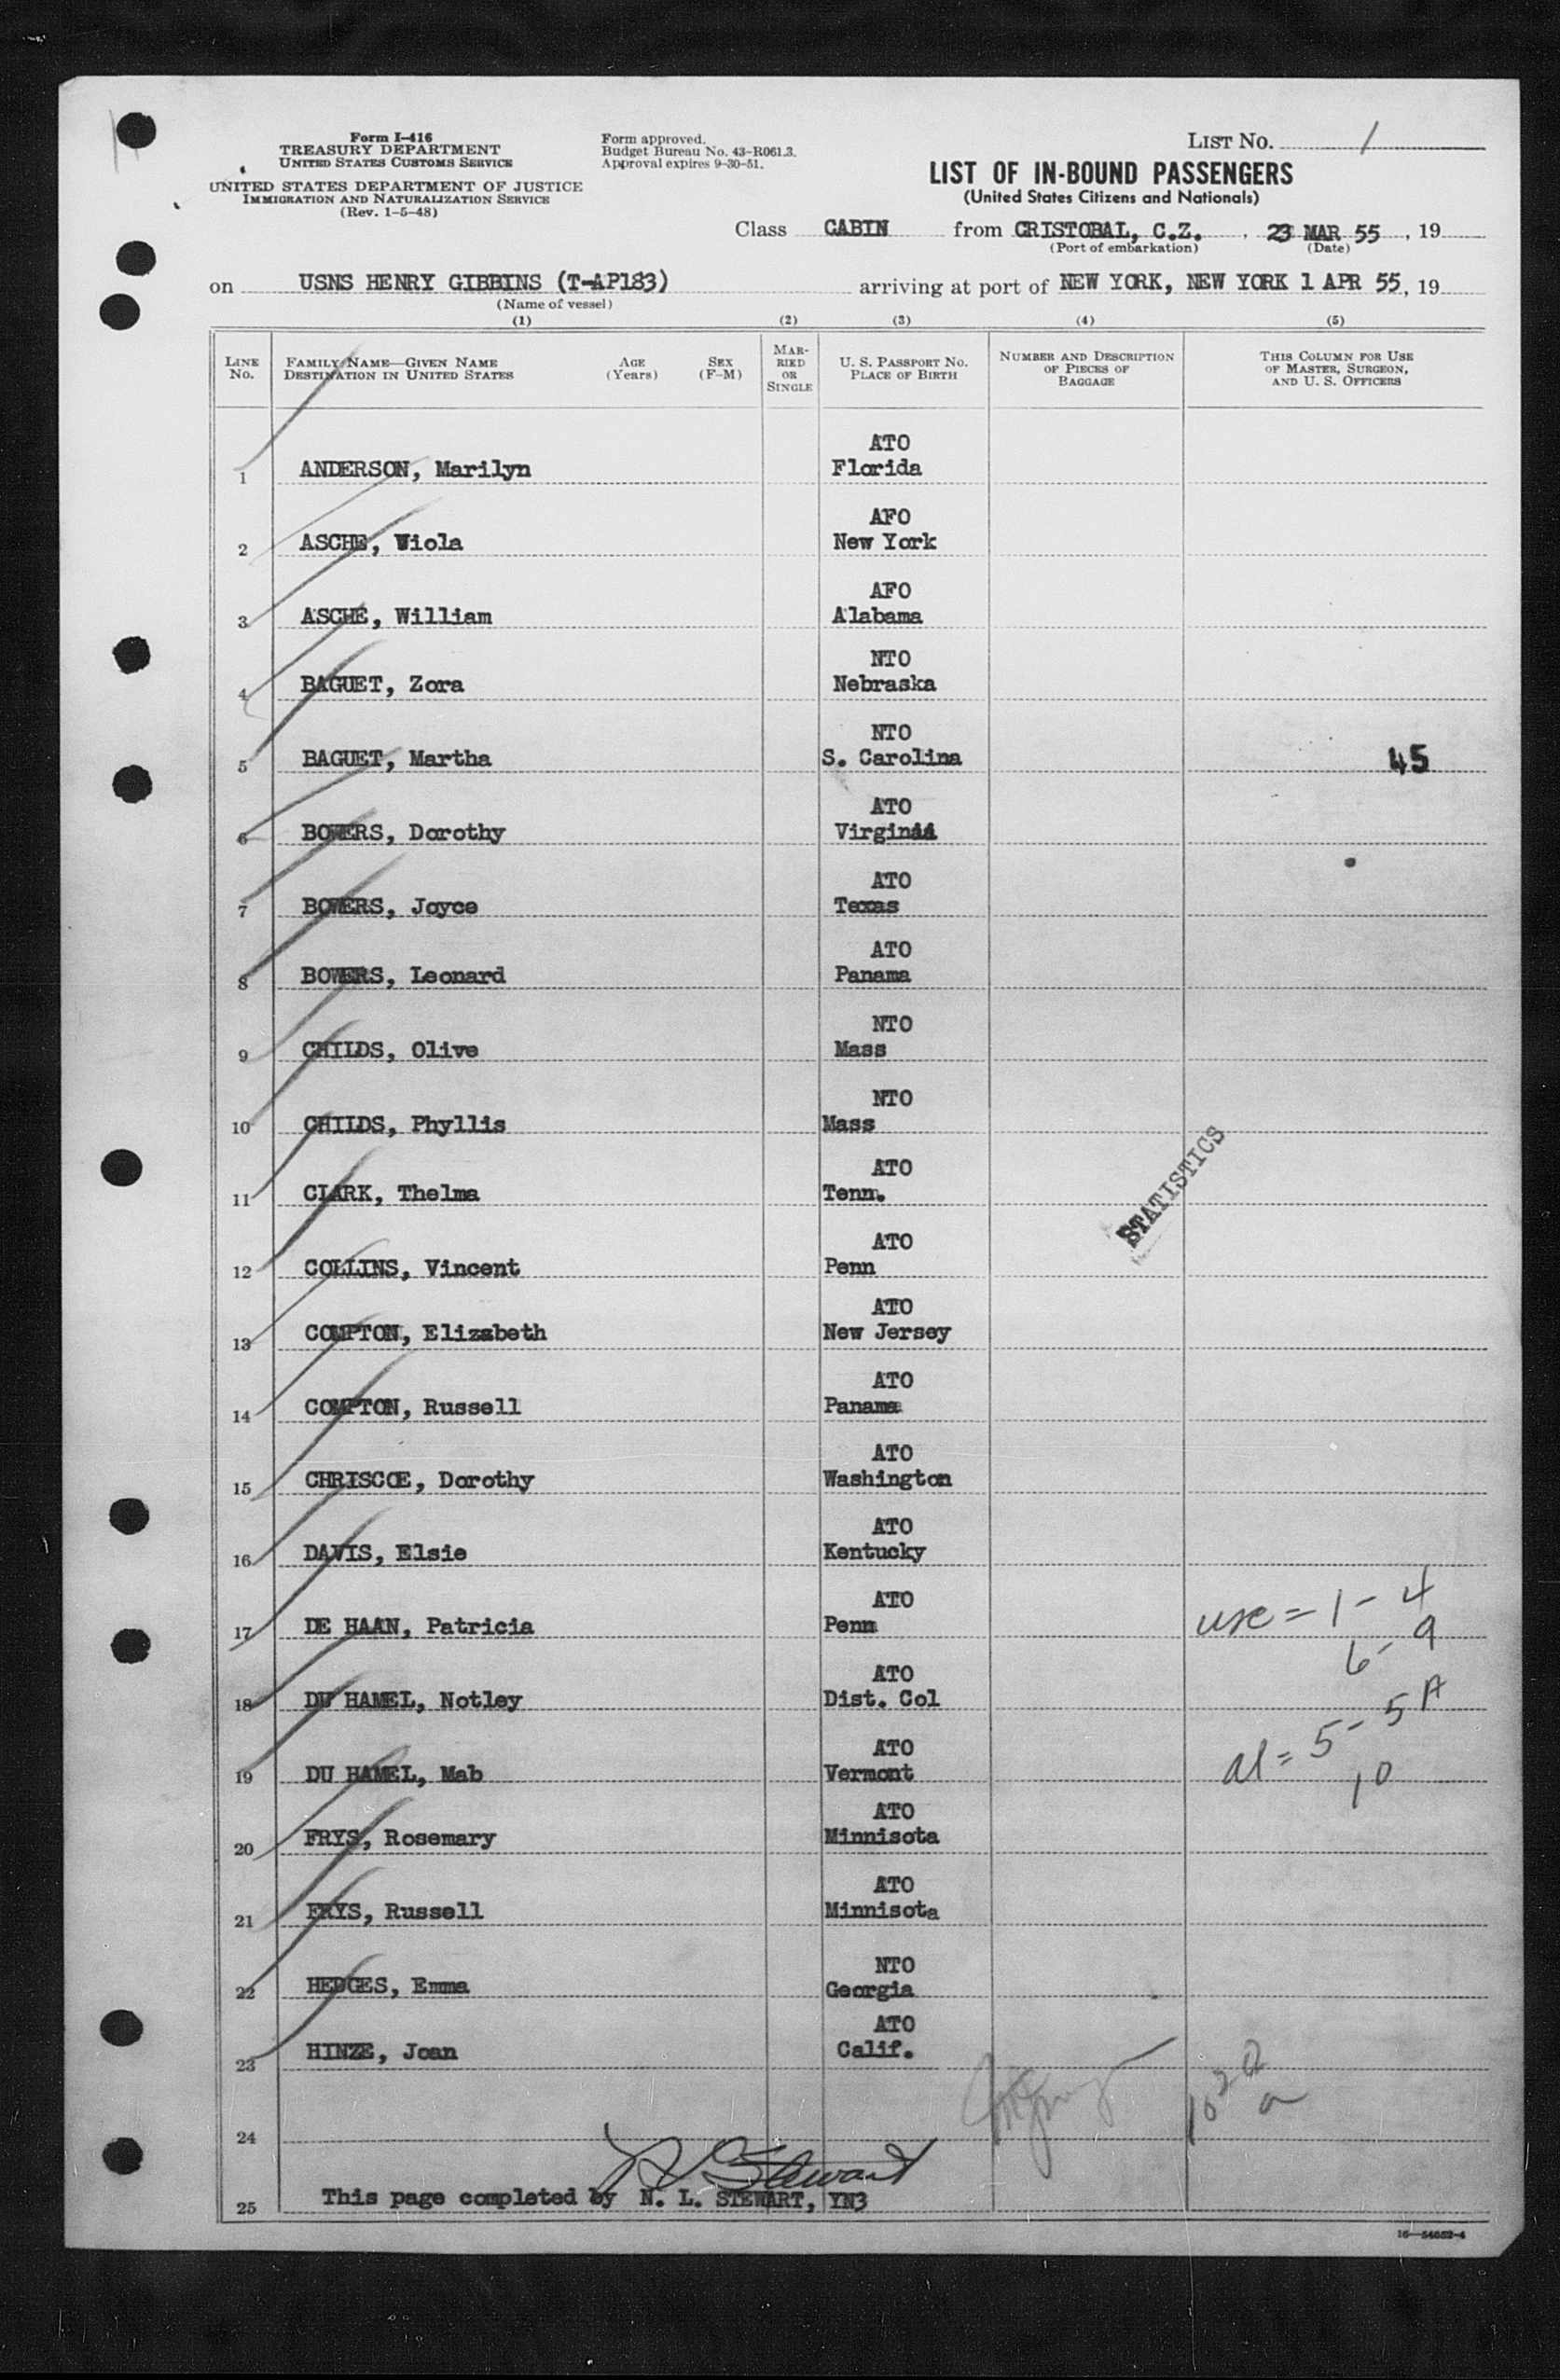 Form I-416
TREASURY DEPARTMENT
UNITED STATES CUSTOMS SERVICE
UNITED STATES DEPARTMENT OF JUSTICE
IMMIGRATION AND NATURALIZATION SERVICE
(Rev. 1-5-48)
Form approved.
Budget Bureau No. 43-R061.3.
Approval expires 9-30-51.
LIST NO. 1
LIST OF IN-BOUND PASSENGERS
(United States Citizens and Nationals)
Class CABIN from CRISTOBAL, C.Z. , 23 MAR 55 , 19
(Port of embarkation) (Date)
on USNS HENRY GIBBINS (T-AP183) arriving at port of NEW YORK, NEW YORK 1 APR 55, 19
(Name of vessel)
(1) (2) (3) (4) (5)
LINE NO. FAMILY NAME—GIVEN NAME DESTINATION IN UNITED STATES AGE (Years) SEX (F-M) MARRIED OR SINGLE U. S. PASSPORT NO. PLACE OF BIRTH NUMBER AND DESCRIPTION OF PIECES OF BAGGAGE THIS COLUMN FOR USE OF MASTER, SURGEON, AND U. S. OFFICERS
ATO
1 ANDERSON, Marilyn Florida
AFO
2 ASCHE, Viola New York
AFO
3 ASCHE, William Alabama
NTO
4 BAGUET, Zora Nebraska
NTO
5 BAGUET, Martha S. Carolina 45
ATO
6 BOWERS, Dorothy Virginii
ATO
7 BOWERS, Joyce Texas
ATO
8 BOWERS, Leonard Panama
NTO
9 CHILDS, Olive Mass
NTO
10 CHILDS, Phyllis Mass
STATISTICS
ATO
11 CLARK, Thelma Tenn.
ATO
12 COLLINS, Vincent Penn
ATO
13 COMPTON, Elizabeth New Jersey
ATO
14 COMPTON, Russell Panama
ATO
15 CHRISCOE, Dorothy Washington
ATO
16 DAVIS, Elsie Kentucky
ATO
17 DE HAAN, Patricia Penn usc = 1 - 4
6 - 9
ATO
18 DU HAMEL, Notley Dist. Col
ATO
19 DU HAMEL, Mab Vermont al = 5 - 5A
10
ATO
20 FRYS, Rosemary Minnisota
ATO
21 FRYS, Russell Minnisota
NTO
22 HEDGES, Emma Georgia
ATO
23 HINZE, Joan Calif.
24
N L Stewart
25 This page completed by N. L. STEWART, YN3
16—54652-4